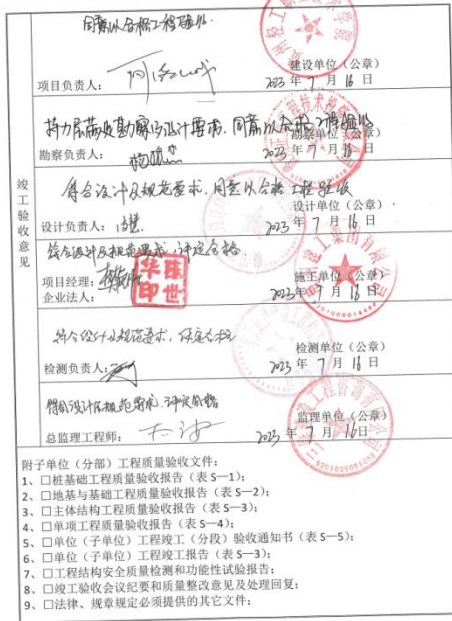 同意以合格工程验收.
项目负责人:
建设单位（公章）
2023 年 7 月 16 日
持力层满足勘察与设计要求. 同意以合格工程验收
勘察单位（公章）
勘察负责人:
2023 年 7 月 16 日
竣工验收意见
符合设计及规范要求, 同意以合格工程验收
设计单位（公章）
设计负责人:
2023 年 7 月 16 日
符合设计及规范要求, 评定合格
项目经理:
施工单位（公章）
企业法人:
2023年 7 月 16 日
符合设计及规范要求, 评定合格
检测单位（公章）
检测负责人:
2023 年 7 月 16 日
符合设计及规范要求. 评定合格
监理单位（公章）
总监理工程师:
2023 年 7 月 16 日
附子单位（分部）工程质量验收文件:
1、□桩基础工程质量验收报告（表 S—1）;
2、□地基与基础工程质量验收报告（表 S—2）;
3、□主体结构工程质量验收报告（表 S—3）;
4、□单项工程质量验收报告（表 S—4）;
5、□单位（子单位）工程竣工（分段）验收通知书（表 S—5）;
6、□单位（子单位）工程竣工报告（表 S—3）;
7、□工程结构安全质量检测和功能性试验报告;
8、□竣工验收会议纪要和质量整改意见及处理回复;
9、□法律、规章规定必须提供的其它文件;